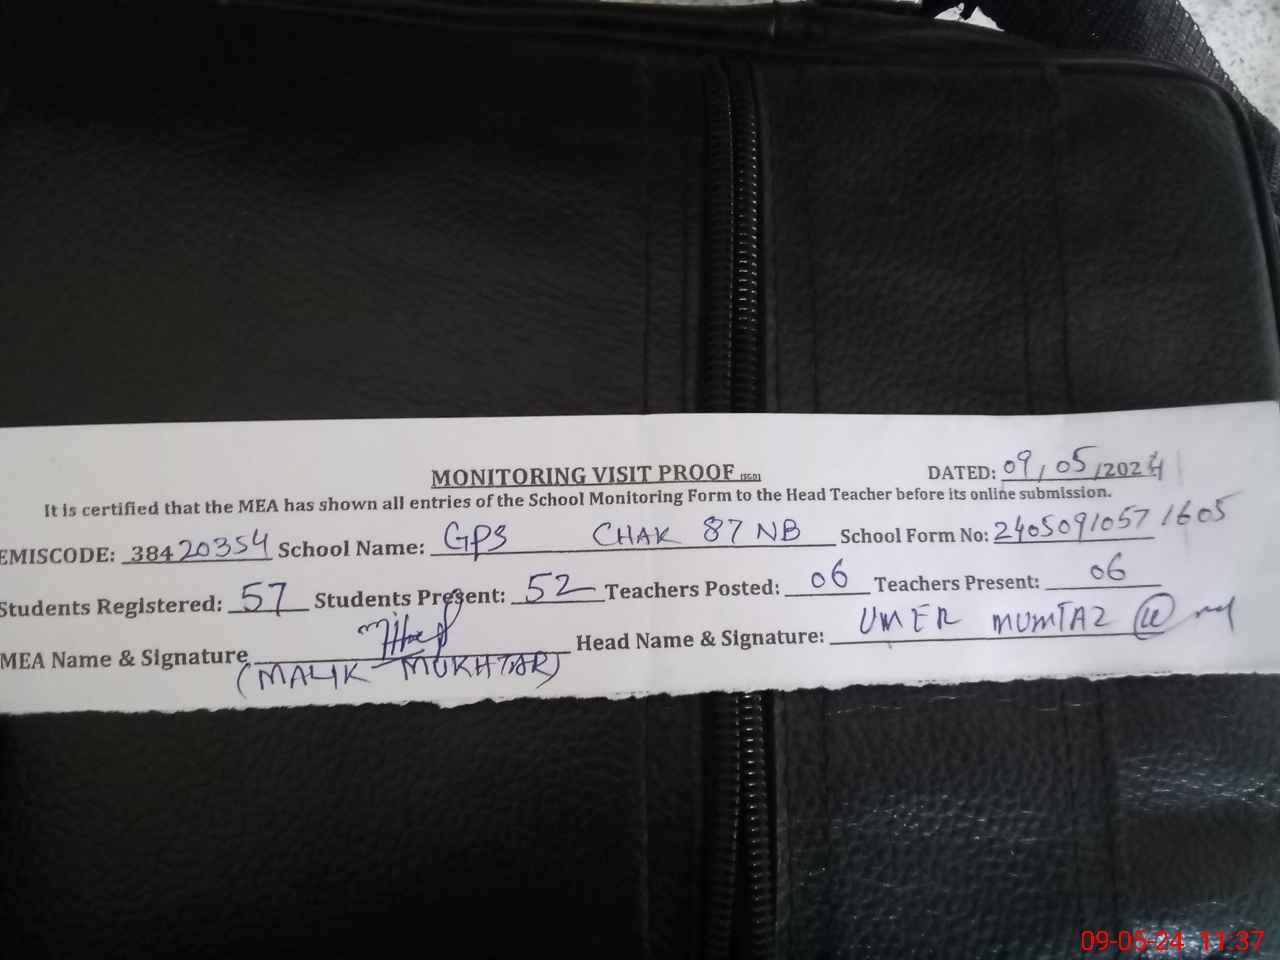 MONITORING VISIT PROOF (SGD)
DATED: 09/05/2024
It is certified that the MEA has shown all entries of the School Monitoring Form to the Head Teacher before its online submission.
EMISCODE: 38420354 School Name: GPS CHAK 87 NB School Form No: 24050910571605
Students Registered: 57 Students Present: 52 Teachers Posted: 06 Teachers Present: 06
MEA Name & Signature Head Name & Signature: UMER MUMTAZ
(MALIK MUKHTAR)
09-05-24 11:37